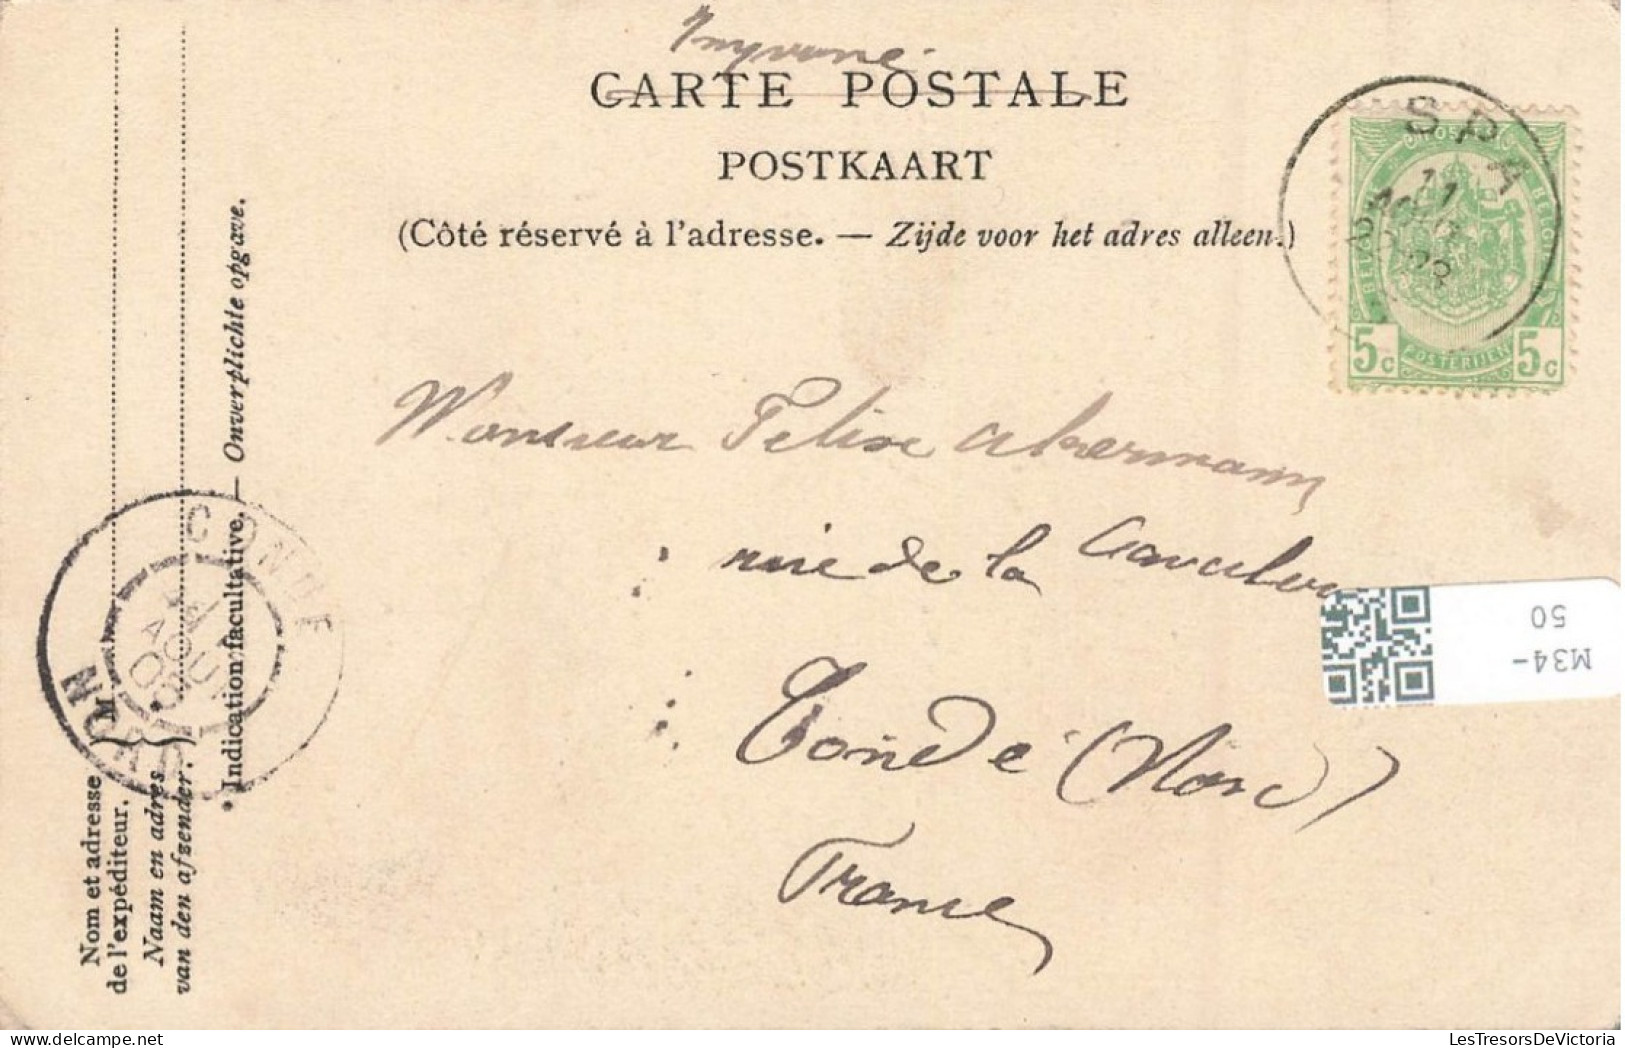 Imprimé
CARTE POSTALE
POSTKAART
(Côté réservé à l'adresse. — Zijde voor het adres alleen.)
SPA
11
5 C
5 C
POSTERIJEN
Monsieur Felix Akermann
rue de la
Condé (Nord)
France
M34-
50
CONDE
NORD
AOUT
* Indication facultative. — Onverplichte opgave.
Nom et adresse
de l'expéditeur.
Naam en adres
van den afzender.
M
LesTresorsDeVictoria